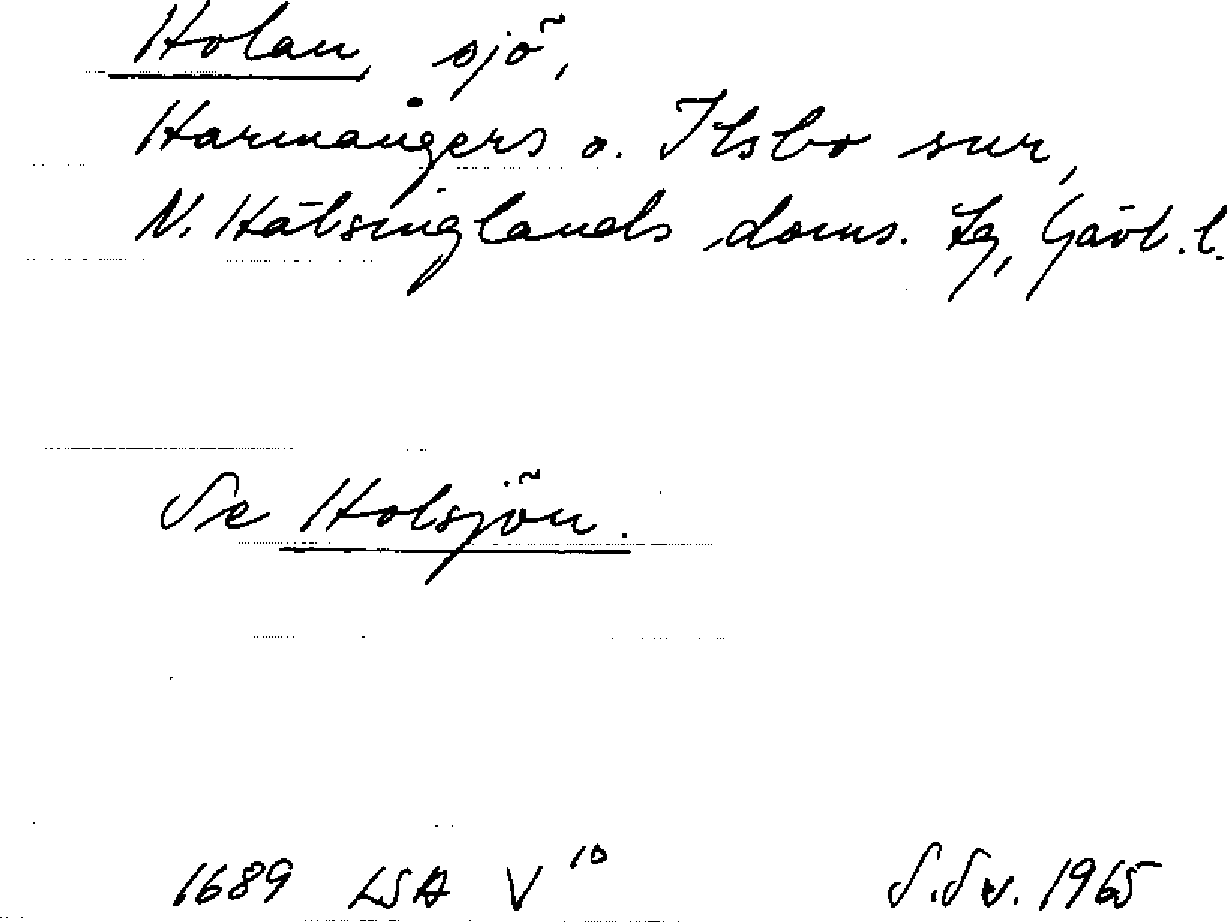 Holan, sjö,
Harmångers o. Ilsbo snr,
N. Hälsinglands doms. tg, Gävl. l.
Se Holsjön.
1689 LSA V 10 S. Sv. 1965